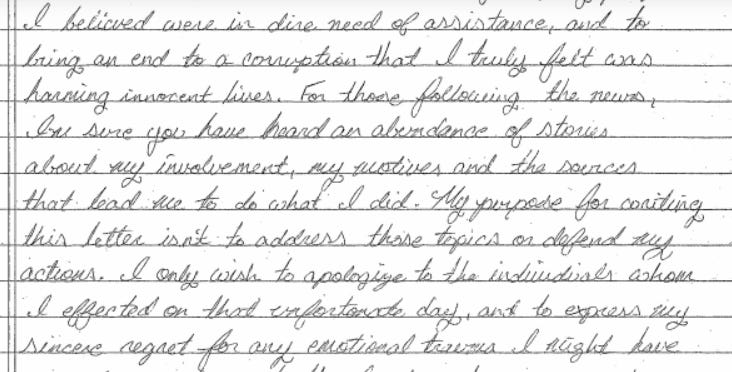 I believed were in dire need of assistance, and to
bring an end to a corruption that I truly felt was
harming innocent lives. For those following the news,
I'm sure you have heard an abundance of stories
about my involvement, my motives and the sources
that lead me to do what I did. My purpose for writing
this letter isn't to address those topics or defend my
actions. I only wish to apologize to the individuals whom
I effected on that unfortunate day, and to express my
sincere regret for any emotional trauma I might have